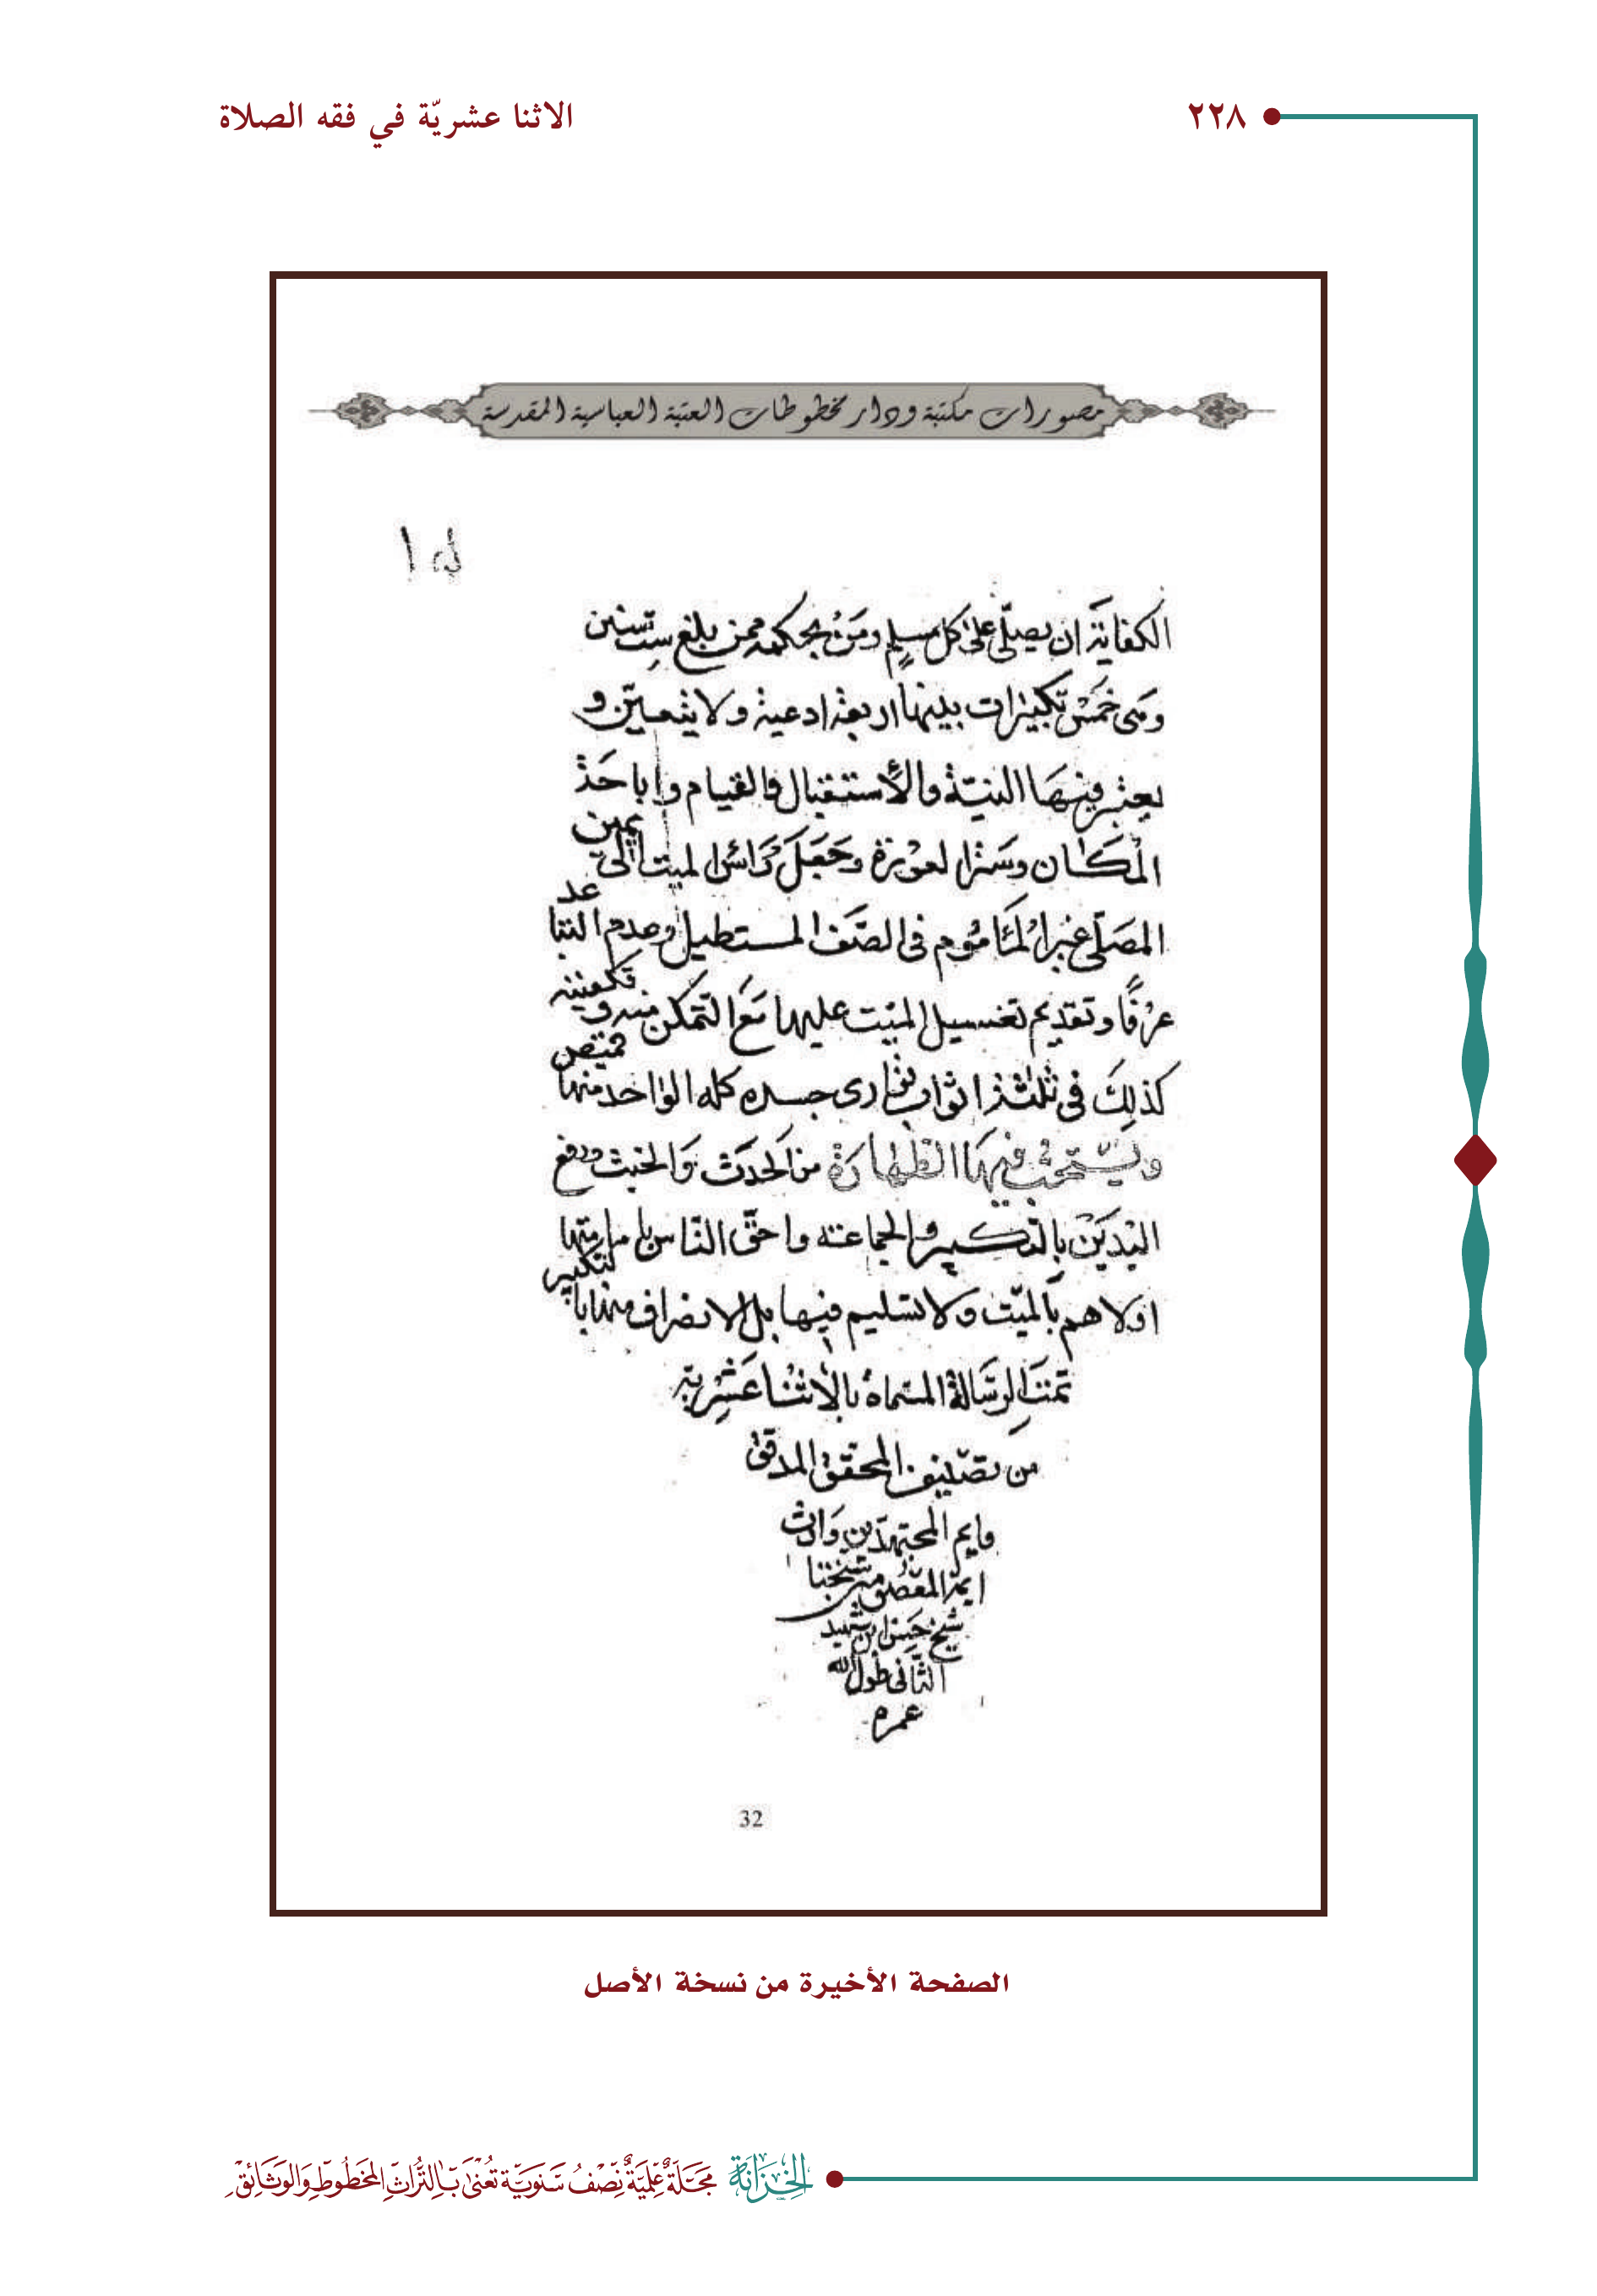 ٢٢٨
الاثنا عشريّة في فقه الصلاة
مصورات مكتبة ودار مخطوطات العتبة العباسية المقدسة
الكفاية ان يصلّى على كل مسلم ومَنْ بحكمه ممن بلغ ست سنين
وهى خمس تكبيرات بينها اربعة ادعية ولا يتعيّن و
يعتبر فيها النيّة والاستقبال والقيام واباحة
المكان وستر العورة وجَعَلَ رَاس الميت الى يمين
المصَلّى غير المأموم فى الصّف المستطيل وعدم التباعد
عرْفًا وتقديم تغسيل الميّت عليها مَعَ التمكن منه وتكفينه
كذلِكَ فى ثلثة اثواب يوارى جسده كله الواحد منها قميص
ويستحب فيهَا الطهارَة من الحدَث وَالخبث ورفع
اليدَين بالتكبير والجماعة واحقّ النّاس بامامتها
اولاهم بالميّت ولا تسليم فيها بل الانصراف منها بالتكبير
تمت الرسَالة المسماة بالاثنا عَشْرية
من تصنيف المحقق المدقق
المجتهدين وَارث
شيخنا
شيخ حسن ابن شهيد
الثّانى طول الله
عمره
32
الصفحة الأخيرة من نسخة الأصل
الخِزانة مَجَلَّةٌ عِلْمِيَّةٌ نِصْفُ سَنَوِيَّة تُعْنَى بِالتُّرَاثِ المَخْطُوطِ وَالوَثَائِق